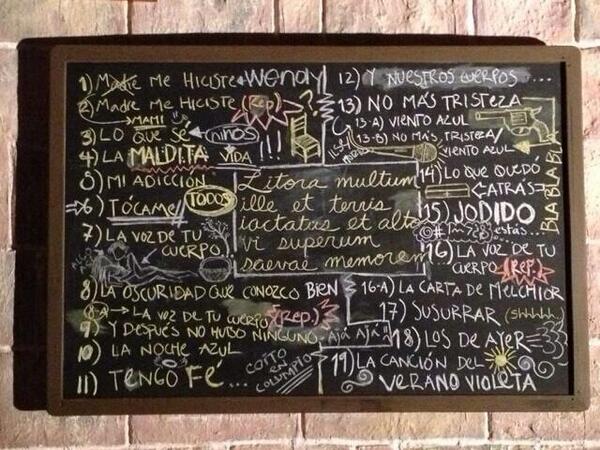 1) Madre me hiciste
Wendy
2) Madre me hiciste (Rep.)
MAMI
3) LO QUE SÉ
NIÑOS
!!!
4) LA MALDITA VIDA
5) MI ADICCIÓN
6) TÓCAME
TODOS
7) LA VOZ DE TU
CUERPO
8) LA OSCURIDAD QUE CONOZCO BIEN
8A → LA VOZ DE TU CUERPO (Rep.)
9) Y DESPUÉS NO HUBO NINGUNO
10) LA NOCHE AZUL
11) TENGO FÉ...
COITO
EN
COLUMPIO
Litora multum
ille et terris
iactatus et alto
vi superum
saevae memorem
AJÁ AJÁ
12) Y NUESTROS CUERPOS...
13) NO MÁS TRISTEZA
13-A) VIENTO AZUL
13-B) NO MÁS TRISTEZA/
VIENTO AZUL
14) LO QUE QUEDÓ
ATRÁS
15) JODIDO
estás...
BLA BLA BLA
16) LA VOZ DE TU
CUERPO (REP.)
16-A) LA CARTA DE MELCHIOR
17) SUSURRAR (Shhhhh)
18) LOS DE AYER
19) LA CANCIÓN DEL
VERANO VIOLETA